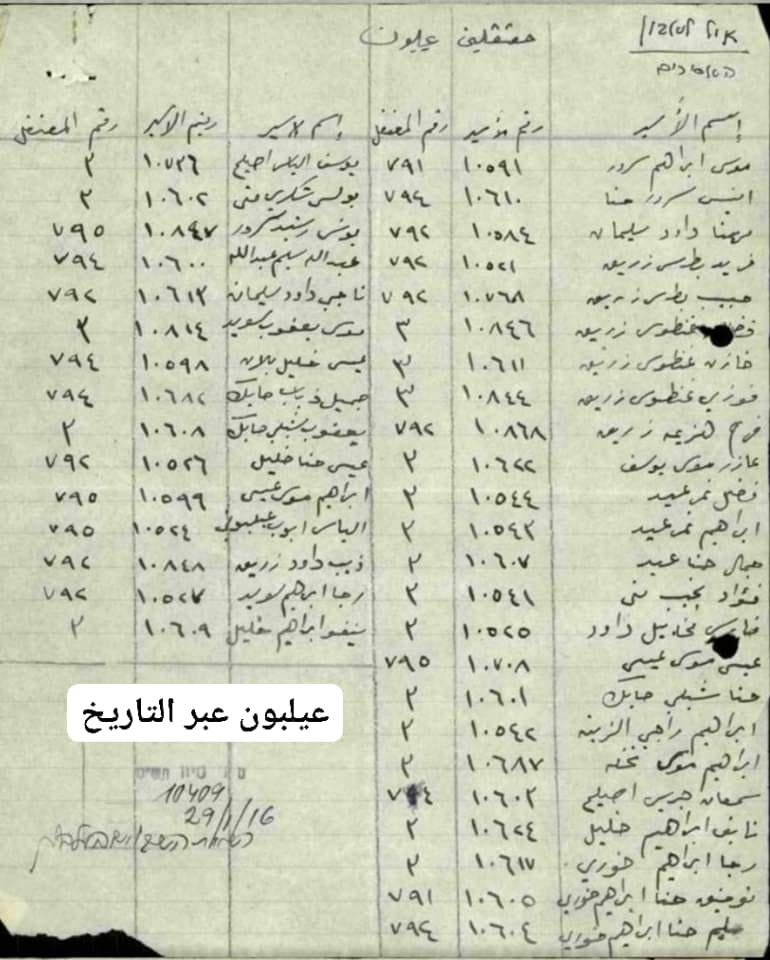 معتقلين عيلبون
إسم الأسير رقم الأسير رقم المعتقل إسم الاسير رقم الاسير رقم المعتقل
موسى ابراهيم سرور ١٠٥٩١ ٧٩١ يوسف الياس اصليح ١٠٧٣٦ ٣
انيس سرور حنا ١٠٦١٠ ٧٩٤ بولس شكري متى ١٠٦٠٢ ٣
مهنا داود سليمان ١٠٥٨٤ ٧٩٢ يونس رشيد سرور ١٠٨٤٧ ٧٩٥
فريد بطرس زريق ١٠٥٢١ ٧٩٢ عبدالله سليم عبدالله ١٠٦٠٠ ٧٩٤
حبيب بطرس زريق ١٠٧٦٨ ٧٩٢ ناجي داود سليمان ١٠٦١٣ ٧٩٢
غطوس زريق ١٠٨٤٦ ٣ موسى يعقوب سويد ١٠٨١٤ ٣
خازن غطوس زريق ١٠٦١١ ٣ عيسى خليل بلان ١٠٥٩٨ ٧٩٤
فوزي غطوس زريق ١٠٨٤٤ ٣ جميل ذياب حايك ١٠٦٨٢ ٧٩٤
فرج هزيمه زريق ١٠٨٦٨ ٧٩٢ يعقوب شبلي حايك ١٠٦٠٨ ٣
عازر موسى يوسف ١٠٦٢٢ ٣ عيسى حنا خليل ١٠٥٢٦ ٧٩٢
فضل نمر عيد ١٠٥٤٤ ٣ ابراهيم موسى عيسى ١٠٥٩٩ ٧٩٥
ابراهيم نمر عيد ١٠٥٤٣ ٣ الياس ايوب عيلبوني ١٠٥٢٤ ٧٩٥
جمال حنا عيد ١٠٦٠٧ ٣ ذيب داود زريق ١٠٨٤٨ ٧٩٢
فؤاد نجيب متى ١٠٥٤١ ٣ رجا ابراهيم سويد ١٠٥٢٧ ٧٩٢
مخاييل داود ١٠٥٢٥ ٣ ابراهيم خليل ١٠٦٠٩ ٣
عيسى موسى عيسى ١٠٧٠٨ ٧٩٥
حنا شبلي حايك ١٠٦٠١ ٣
ابراهيم راجي الزينه ١٠٥٤٢ ٣
ابراهيم موسى نخله ١٠٦٨٧ ٣
سمعان جريس اصليح ١٠٦٠٣ ٧٩٤
نايف ابراهيم خليل ١٠٦٢٤ ٣
رجا ابراهيم خوري ١٠٦١٧ ٣
توفيق حنا ابراهيم خوري ١٠٦٠٥ ٧٩١
سليم حنا ابراهيم خوري ١٠٦٠٤ ٧٩٤
عيلبون عبر التاريخ
10409
29/1/16